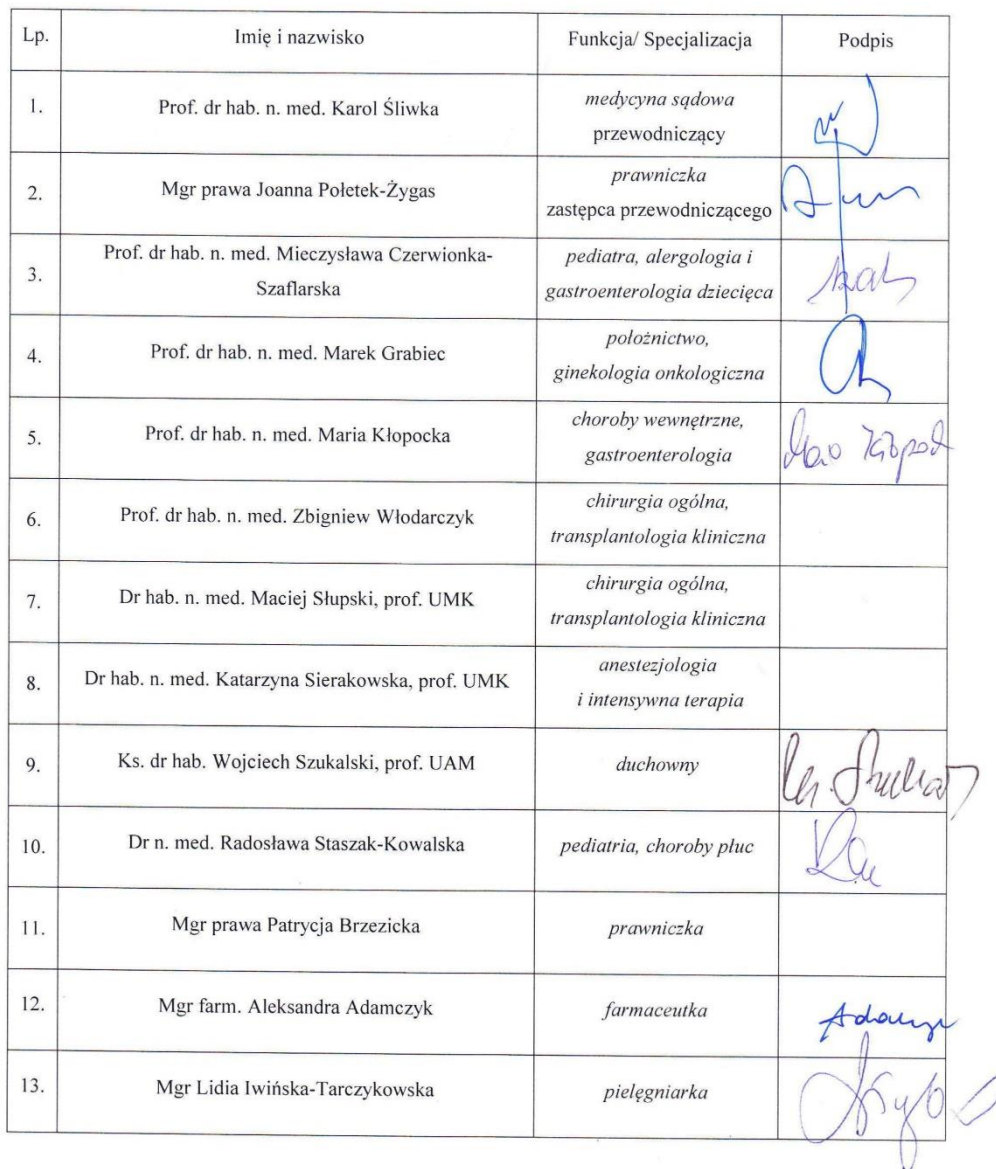 Lp. Imię i nazwisko Funkcja/ Specjalizacja Podpis
1. Prof. dr hab. n. med. Karol Śliwka medycyna sądowa
przewodniczący
2. Mgr prawa Joanna Połetek-Żygas prawniczka
zastępca przewodniczącego
3. Prof. dr hab. n. med. Mieczysława Czerwionka-
Szaflarska pediatra, alergologia i
gastroenterologia dziecięca
4. Prof. dr hab. n. med. Marek Grabiec położnictwo,
ginekologia onkologiczna
5. Prof. dr hab. n. med. Maria Kłopocka choroby wewnętrzne,
gastroenterologia
6. Prof. dr hab. n. med. Zbigniew Włodarczyk chirurgia ogólna,
transplantologia kliniczna
7. Dr hab. n. med. Maciej Słupski, prof. UMK chirurgia ogólna,
transplantologia kliniczna
8. Dr hab. n. med. Katarzyna Sierakowska, prof. UMK anestezjologia
i intensywna terapia
9. Ks. dr hab. Wojciech Szukalski, prof. UAM duchowny
10. Dr n. med. Radosława Staszak-Kowalska pediatria, choroby płuc
11. Mgr prawa Patrycja Brzezicka prawniczka
12. Mgr farm. Aleksandra Adamczyk farmaceutka
13. Mgr Lidia Iwińska-Tarczykowska pielęgniarka